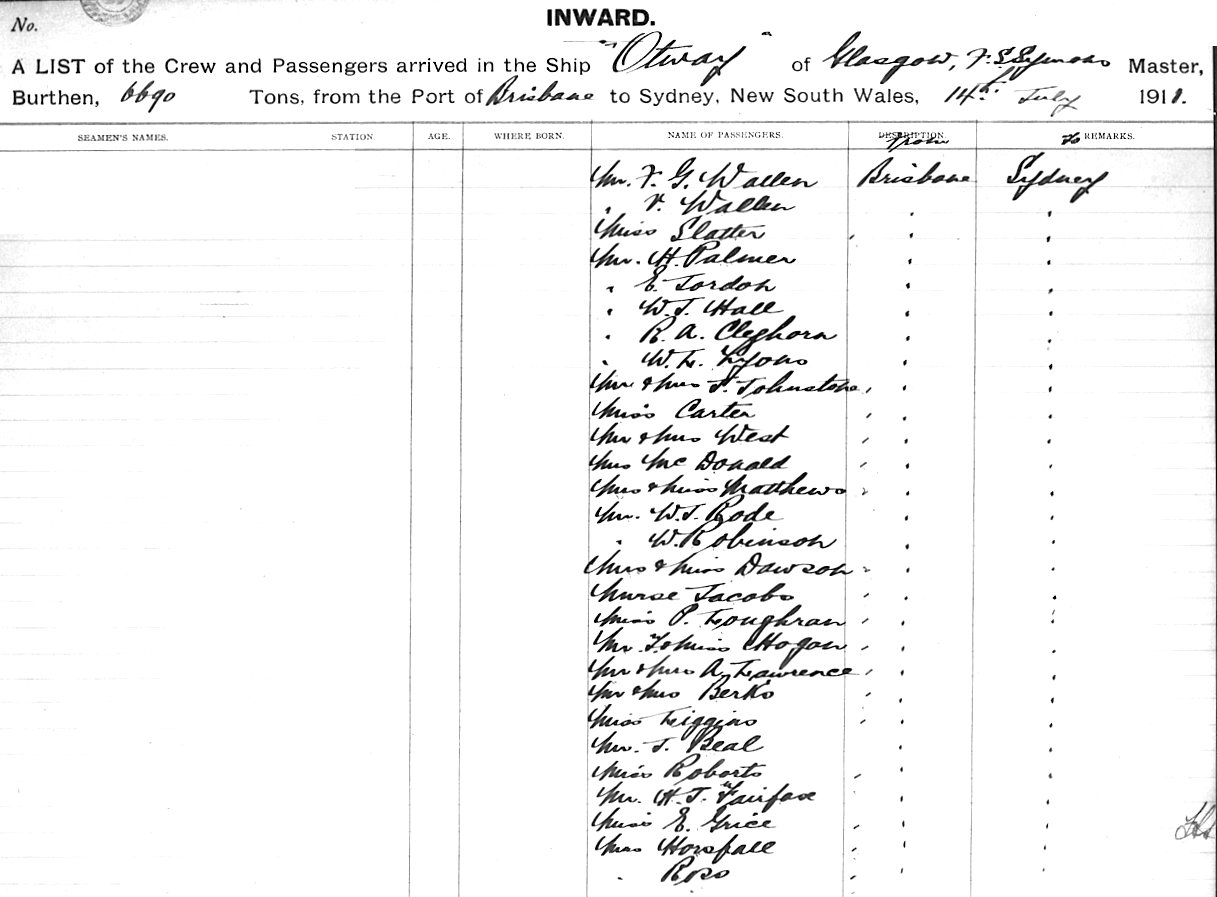 No.
INWARD.
A LIST of the Crew and Passengers arrived in the Ship "Otway" of Glasgow, F. S. Symons Master,
Burthen, 6690 Tons, from the Port of Brisbane to Sydney, New South Wales, 14th July 1911.
SEAMEN'S NAMES. STATION. AGE. WHERE BORN. NAME OF PASSENGERS. DESCRIPTION. from to REMARKS.
Mr. F. G. Wallen Brisbane Sydney
" V. Wallen " "
Miss Slatter " " "
Mr. H. Palmer " "
" E. Tordoh " "
" W. J. Hall " "
" R. A. Cleghorn " "
" W. L. Lyons " "
Mr & Mrs J. Johnstone " " "
Miss Carter " " "
Mr & Mrs West " " "
Mrs McDonald " " "
Mrs & Miss Matthews " " "
Mr. W. J. Rode " "
" W. Robinson " "
Mrs & Miss Dawson " " "
Nurse Jacobs " " "
Miss P. Loughran " " "
Mr & Miss Hogan " " "
Mr & Mrs A. Lawrence " " "
Mr & Mrs Berks " " "
Miss Liggins " " "
Mr. J. Beal " "
Miss Roberts " " "
Mr. H. J. Fairfax " "
Miss E. Grice " " "
Mrs Horsfall " " "
" Ross " " "